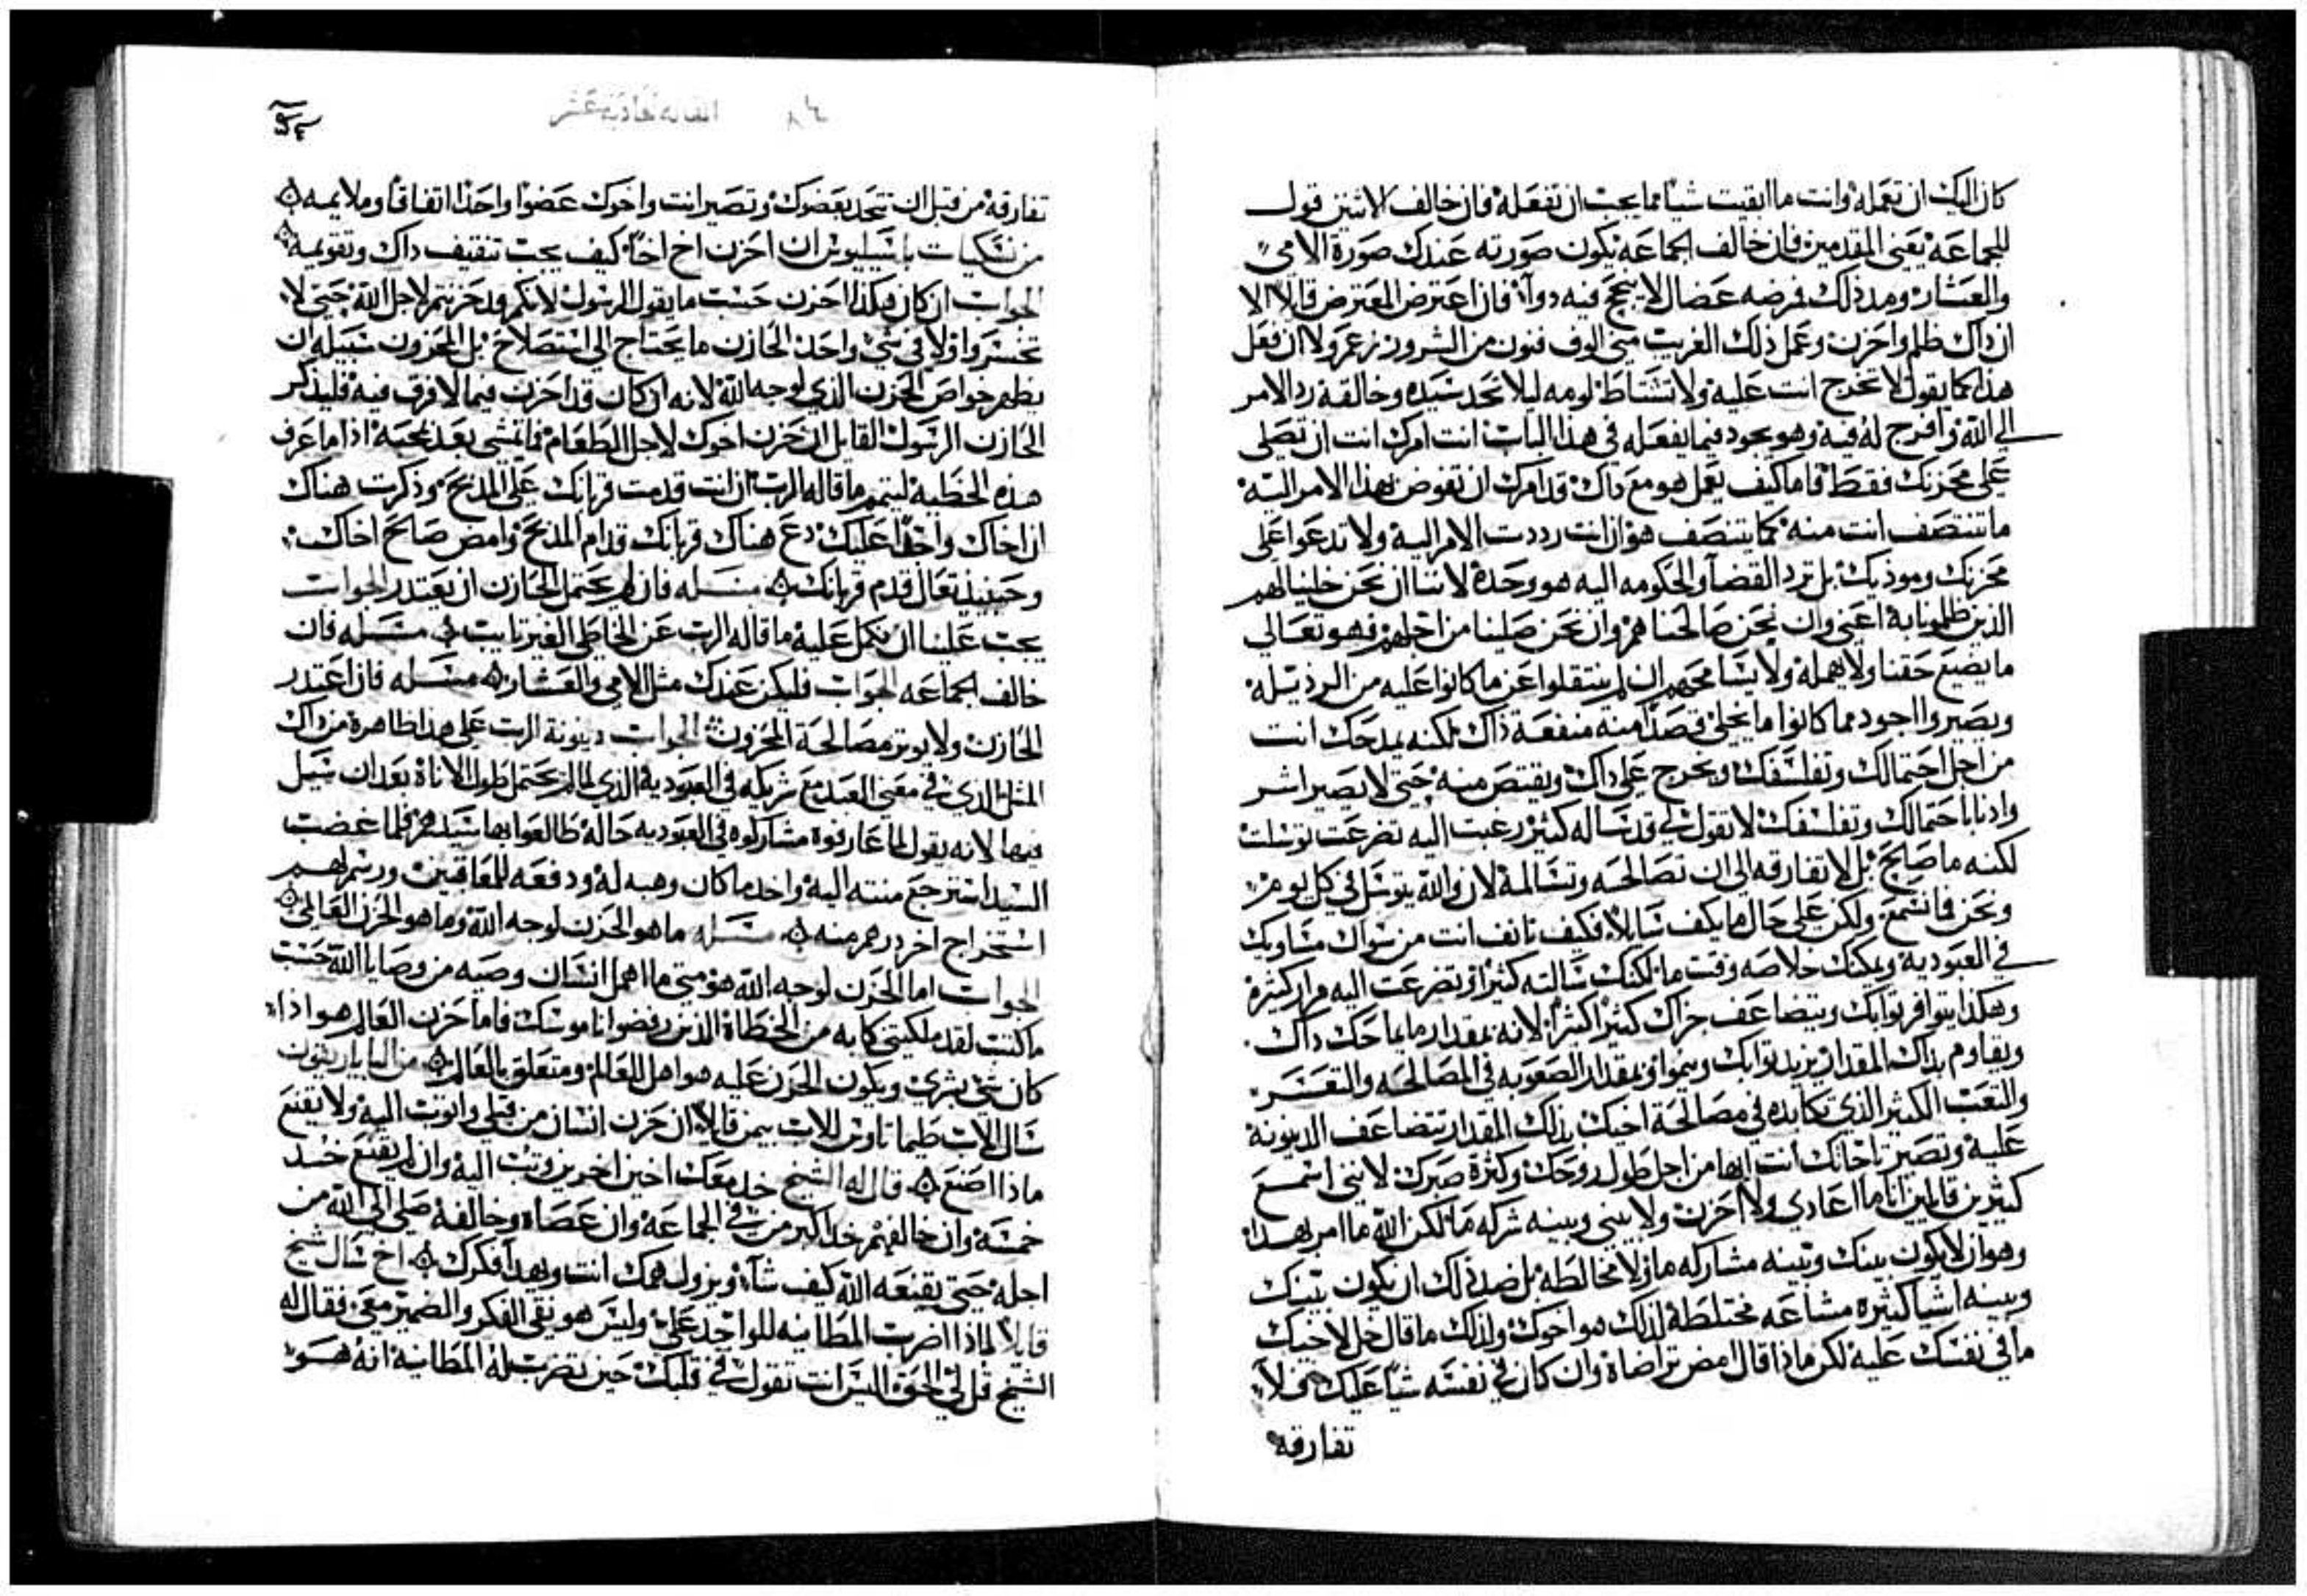 كان اليك ان تعمله وانت ما ابقيت شيا مما يجب ان تفعله فان خالف الاثنين قول
للجماعه يعني المقدمين فان خالف الجماعه يكون صورته عندك صورة الامي
والعشار ومد ذلك فرضه عضال لا ينجح فيه دوآ فان اعترض المعترض قايلا الا
ان داك ظلم واحزن وعمل ذلك الغريب مني الوف فنون من الشرور ولا ان فعل
هذا كما يقول لا تخرج انت عليه ولا تشتاط لومه ليلا تجد سيده وخالقه رد الامر
الي الله وافرج له فيه وهو يجود فيما يفعله في هذا الباب انت امرك انت ان تصلي
علي محزنك فقط فاما كيف يعمل هو مع داك قد امرك ان تفوض هذا الامر اليه
ما تنتصف انت منه كما ينتصف هو ان انت رددت الامر اليه ولا تدعوا علي
محزنك وموذيك بل ترد القضآ والحكومه اليه هو وحده لاننا ان نحن خلينا لهم
الذين ظلمونا به اعني وان نحن صالحناهم وان نحن صلينا من اجلهم فهو تعالي
ما يضيع حقنا ولا يهمله ولا يشا محبهم ان لم ينتقلوا عن ما كانوا عليه من الرذيله
ويصيروا اجود مما كانوا ما يخلي قصدا منه منفعة ذاك لكنه يمدحك انت
من اجل احتمالك وتفلسفك ويحرج علي داك ويقتص منه حتي لا يصير اشر
وادنا باحتمالك وتفلسفك لا تقول لي قد ساله كثير رغبت اليه تضرعت توسلت
لكنه ما صالح بل لا تفارقه الي ان تصالحه وتسالمه لان والله يتوسل في كل يوم
ونحن فما نسمع ولكن علي حال ما يكف سايلا فكيف تانف انت من سواك مساويك
في العبوديه ويمكنك خلاصه وقت ما لكنك سالته كثيرا وتضرعت اليه مرار كثيرة
وهكذا يتوافر ثوابك ويتضاعف جزاك كثيرا اكثر لانه بمقدار ما يماحك داك
ويقاوم بذاك المقدار يزيد ثوابك وينموا وبمقدار الصعوبه في المصالحه والتعسر
والتعب الكثير الذي تكابده في مصالحة اخيك بذلك المقدار تتضاعف الدينونة
عليه وتصير تاجاتك انت ابها من اجل طول روحك وكثرة صبرك لانني اسمع
كثيرين قايلين انا ما اعادي ولا احزن ولا بيني وبينه شركه ما لكن الله ما امر بهذا
وهو ان لا يكون بينك وبينه مشاركه ما ولا مخالطه بل ضد ذلك ان يكون بينك
وبينه اشيا كثيره مشاعه مختلطة لذلك هو اخوك ولذلك ما قال خل لاخيك
ما في نفسك عليه لكن ماذا قال امض تراضاه وان كان في نفسه شيا عليك حتي لا
تفارقه
تفارقه من قبل ان تتحد بعضوك وتصير انت واخوك عضوا واحدا اتفاقا وملايمه
من نسكيات باسيليوس ان احزن اخ اخا كيف يجب تثقيف داك وتقويمه
الجواب ان كان هكذا احزن حسب ما يقول الرسول لانكم قد حزنتم لاجل الله حتي لا
تخسروا ولا في شي واحد الحازن ما يحتاج الي استصلاح بل المحزون سبيله ان
يظهر خواص الحزن الذي لوجه الله لانه ان كان قد احزن فيما لا فرق فيه فليذكر
الحازن الرسول القايل ان حزن اخوك لاجل الطعام فما تمشي بعد بمحبه اذا ما عرف
هذه الخطيه ليتمم ما قاله الرب ان انت قدمت قربانك علي المذبح وذكرت هناك
ان اخاك واجدا عليك دع هناك قربانك قدام المذبح وامض صالح اخاك
وحينيذ تعال قدم قربانك مسله فان لم يحتمل الحازن ان يعتدر الجواب
يجب علينا ان نكمل عليه ما قاله الرب عن الخاطي الغير تايب مسله فان
خالف الجماعه الجواب فليكن عندك مثل الامي والعشار مسله فان اعتدر
الحازن ولا يوثر مصالحة المحزون الجواب دينونة الرب علي هذا ظاهرة من داك
المثل الذي في معني العبد مع شريكه في العبودية الذي لما لم يحتمل طول الاناة بعد ان سيل
فيها لانه يقول لما عاريوه مشاركوه في العبوديه حاله طالعوا بها سيدهم فلما غضب
السيد استرجع منته اليه واخد ما كان وهبه له ودفعه للمعاقبين ورسم لهم
استخراج اخر درهم منه مسله ما هو الحزن لوجه الله وما هو الحزن العالمي
الجواب اما الحزن لوجه الله هو متي ما اهمل انسان وصيه من وصايا الله حسب
ما كتب لقد ملكتني كابه من الخطاة الذين رفضوا ناموسك فاما حزن العالم هو اذا
كان شي بشري ويكون الحزن عليه هو اهل للعالم ومتعلق بالعالم من الباياريقون
سال الاب طيماثاوس للاب بيمن قايلا ان حزن انسان من قبلي واتوب اليه ولا يقنع
ماذا اصنع قال له الشيخ خد معك اخين اخرين وتب اليه وان لم يقنع خد
خمسه وان خالفهم خد اكبر من في الجماعه وان عصاه وخالفه صلي الي الله من
اجله حتي يقنعه الله كيف شآ ويزول همك انت ويهدا فكرك اخ سال شيخ
قايلا لماذا اضرب المطانيه للواجد علي وليس هو نقي الفكر والضمير معي فقال له
الشيخ قل لي الحق اليس انت تقول في قلبك حين تضرب له المطانية انه هو